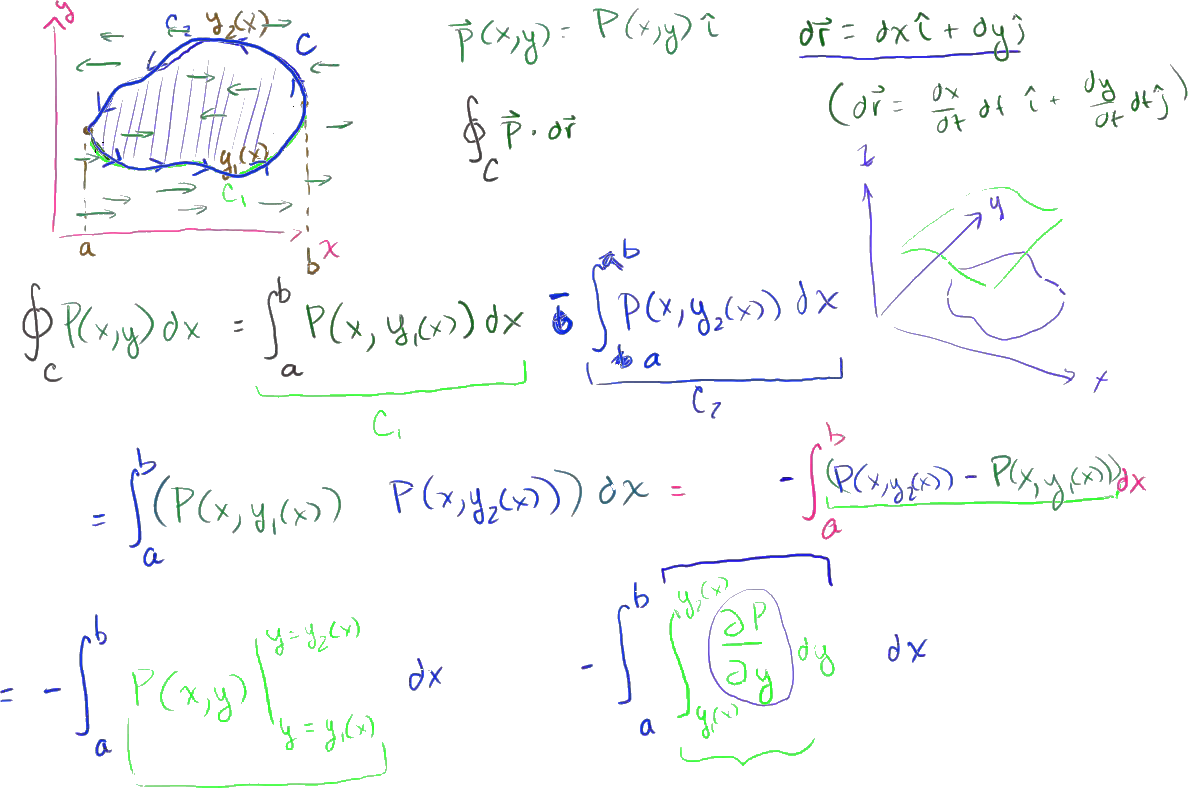 y
C₂ y₂(x)
C
y₁(x)
C₁
a
b
x
P⃗(x,y) = P(x,y) î
∮_C P⃗ · dr⃗
dr⃗ = dx î + dy ĵ
(dr⃗ = dx/dt dt î + dy/dt dt ĵ)
z
y
x
∮_C P(x,y) dx = ∫_a^b P(x, y₁(x)) dx - ∫_a^b P(x, y₂(x)) dx
C₁
C₂
= ∫_a^b (P(x, y₁(x)) P(x, y₂(x))) dx = - ∫_a^b (P(x,y₂(x)) - P(x,y₁(x))) dx
= - ∫_a^b P(x,y) |_{y = y₁(x)}^{y = y₂(x)} dx
- ∫_a^b ∫_{y₁(x)}^{y₂(x)} ∂P/∂y dy dx